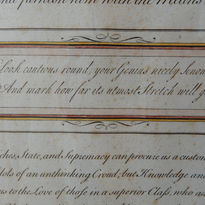 from the Means
look cautious round, your Genius nicely know
And mark how far its utmost Stretch will g
ches, State, and Supremacy can procure us a custom
Idols of an unthinking Croud; but Knowledge and
us to the Love of those in a superior Class, who a